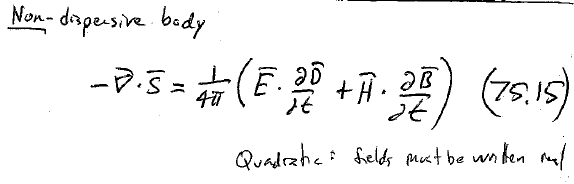 Non-dispersive body
-∇̄·S̄ = 1/4π (Ē · ∂D̄/∂t + H̄ · ∂B̄/∂t) (75.15)
Quadratic: fields must be written real